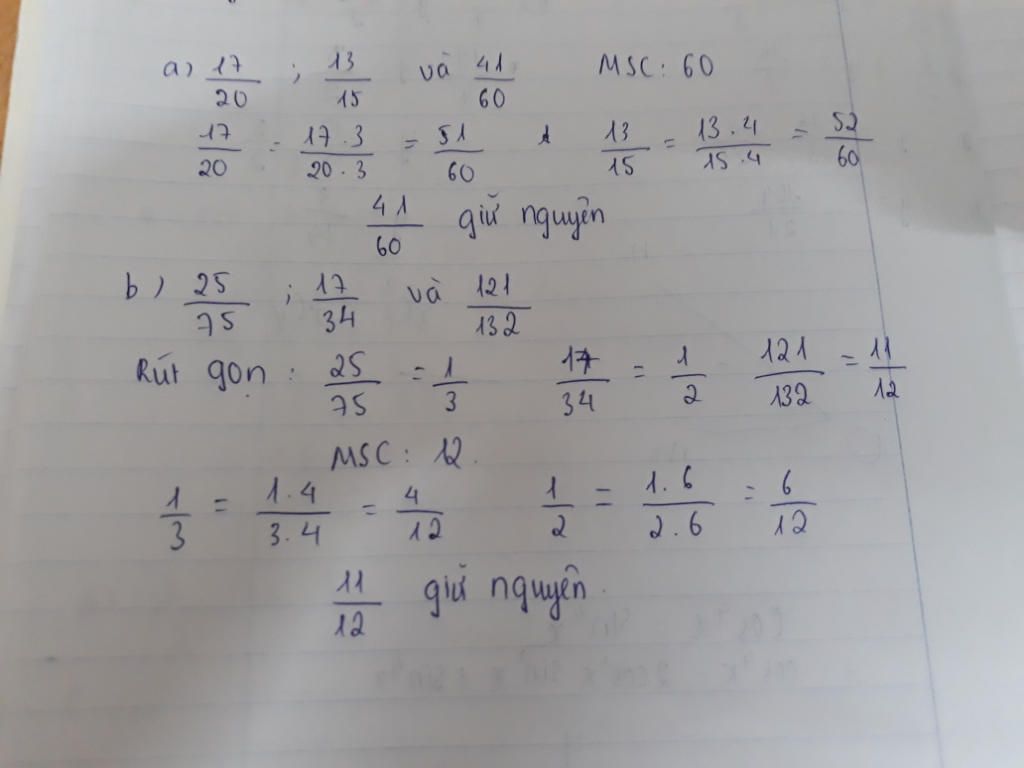 a) 17/20 ; 13/15 và 41/60 MSC: 60
17/20 = 17.3/20.3 = 51/60 13/15 = 13.4/15.4 = 52/60
41/60 giữ nguyên
b) 25/75 ; 17/34 và 121/132
Rút gọn : 25/75 = 1/3 17/34 = 1/2 121/132 = 11/12
MSC: 12.
1/3 = 1.4/3.4 = 4/12 1/2 = 1.6/2.6 = 6/12
11/12 giữ nguyên.